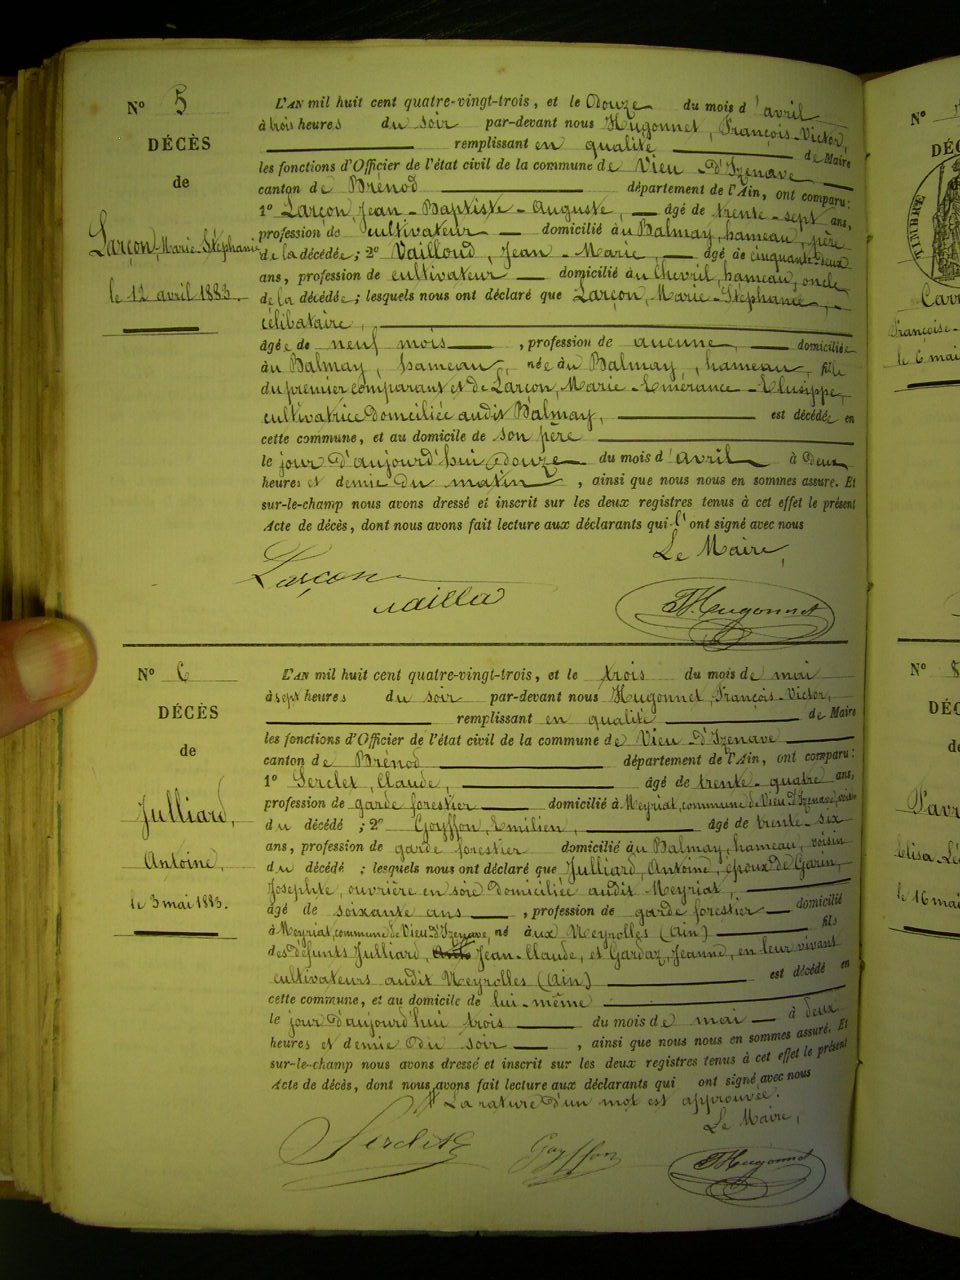 N° 5
DÉCÈS
de
Larçon, Marie-Stéphanie
le 12 avril 1883.
L'AN mil huit cent quatre-vingt-trois, et le Douze du mois d'avril
à trois heures du soir par-devant nous Hugonnet, François-Victor,
remplissant en qualité de Maire
les fonctions d'Officier de l'état civil de la commune de Vieu-d'Izenave
canton de Brénod département de l'Ain, ont comparu:
1° Larçon, Jean-Baptiste-Auguste, âgé de trente-sept ans,
profession de cultivateur domicilié au Balmay, hameau, père
de la décédée; 2° Vailloud, Jean-Marie, âgé de cinquante-deux
ans, profession de cultivateur domicilié au Chevril, hameau, oncle
de la décédée; lesquels nous ont déclaré que Larçon, Marie-Stéphanie,
célibataire,
âgée de neuf mois, profession de aucune, domiciliée
au Balmay, hameau, née au Balmay, hameau, fille
du premier comparant et de Larçon, Marie-Emérance-Elusippe,
cultivatrice domiciliée audit Balmay, est décédée en
cette commune, et au domicile de son père
le jour d'aujourd'hui douze du mois d'avril à Deux
heures et demie du matin, ainsi que nous nous en sommes assuré. Et
sur-le-champ nous avons dressé et inscrit sur les deux registres tenus à cet effet le présent
Acte de décès, dont nous avons fait lecture aux déclarants qui l'ont signé avec nous
Le Maire,
Larçon
Vailloud
Hugonnet
N° 6
DÉCÈS
de
Julliard,
Antoine,
le 3 mai 1883.
L'AN mil huit cent quatre-vingt-trois, et le trois du mois de mai
à sept heures du soir par-devant nous Hugonnet, François-Victor,
remplissant en qualité de Maire
les fonctions d'Officier de l'état civil de la commune de Vieu-d'Izenave
canton de Brénod département de l'Ain, ont comparu:
1° Serclet, Claude, âgé de trente-quatre ans,
profession de garde forestier domicilié à Meyriat, commune de Vieu d'Izenave, voisin
du décédé; 2° Goyffon, Emilien, âgé de trente-six
ans, profession de garde forestier domicilié au Balmay, hameau, voisin
du décédé; lesquels nous ont déclaré que Julliard, Antoine, époux de Garin,
Josephte, ouvrière en soie domiciliée audit Meyriat,
âgé de soixante ans, profession de garde forestier domicilié
à Meyriat, commune de Vieu d'Izenave, né aux Neyrolles (Ain) fils
des défunts Julliard, Jean-Claude, et Gardaz, Jeanne, en leur vivant
cultivateurs audit Neyrolles (Ain) est décédé en
cette commune, et au domicile de lui-même
le jour d'aujourd'hui trois du mois de mai à deux
heures et demie du soir, ainsi que nous nous en sommes assuré. Et
sur-le-champ nous avons dressé et inscrit sur les deux registres tenus à cet effet le présent
Acte de décès, dont nous avons fait lecture aux déclarants qui ont signé avec nous
La rature d'un mot est approuvée.
Le Maire,
Serclet
Goyffon
Hugonnet
N°
TIMBRE
Françoise-
le 6 mai
N° 8
le 16 mai